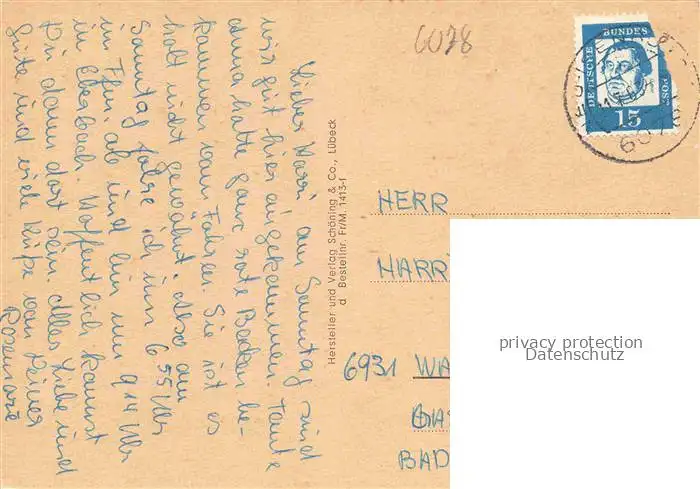 Lieber Harri, am Sonntag sind
wir gut hier angekommen. Tante
Anna hatte ganz rote Backen be-
kommen vom Fahren. Sie ist es
halt nicht gewöhnt. Also am
Sonntag fahre ich um 6 55 Uhr
in Ffm. ab und bin um 9 14 Uhr
in Eberbach. Hoffentlich kannst
Du dann dort sein. Alles Liebe und
Gute und viele Küße von Deiner
Rosemarie
Hersteller und Verlag Schöning & Co., Lübeck
d Bestellnr. Fr/M. 1413-f
6078
DEUTSCHE BUNDESPOST
15
6078
HERR
HARR
6931 WA
GAS
BAD
privacy protection
Datenschutz